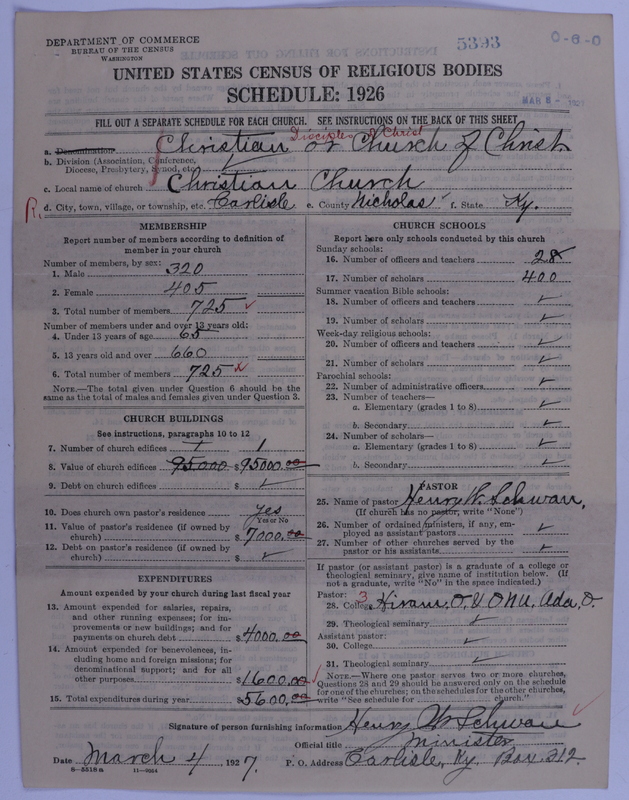 DEPARTMENT OF COMMERCE
BUREAU OF THE CENSUS
WASHINGTON
5393
0-6-0
UNITED STATES CENSUS OF RELIGIOUS BODIES
SCHEDULE: 1926
MAR 8 - 1927
FILL OUT A SEPARATE SCHEDULE FOR EACH CHURCH. SEE INSTRUCTIONS ON THE BACK OF THIS SHEET
Disciples of Christ
a. Denomination Christian or Church of Christ
b. Division (Association, Conference, Diocese, Presbytery, Synod, etc.) ✓
c. Local name of church Christian Church
R. d. City, town, village, or township, etc. Carlisle e. County Nicholas f. State Ky.
MEMBERSHIP
Report number of members according to definition of
member in your church
Number of members, by sex:
1. Male 320
2. Female 405
3. Total number of members 725 ✓
Number of members under and over 13 years old:
4. Under 13 years of age 65
5. 13 years old and over 660
6. Total number of members 725
NOTE.—The total given under Question 6 should be
same as the total of males and females given under Question 3.
CHURCH BUILDINGS
See instructions, paragraphs 10 to 12
7. Number of church edifices 1 1
8. Value of church edifices 95000 $95000.00
9. Debt on church edifices $ ✓
10. Does church own pastor's residence yes
Yes or No
11. Value of pastor's residence (if owned by
church) $7000.00
12. Debt on pastor's residence (if owned by
church) $ ✓
EXPENDITURES
Amount expended by your church during last fiscal year
13. Amount expended for salaries, repairs,
and other running expenses; for im-
provements or new buildings; and for
payments on church debt $4000.00
14. Amount expended for benevolences, in-
cluding home and foreign missions; for
denominational support; and for all
other purposes $1600.00 ✓
15. Total expenditures during year $5600.00
CHURCH SCHOOLS
Report here only schools conducted by this church
Sunday schools:
16. Number of officers and teachers 28
17. Number of scholars 400
Summer vacation Bible schools:
18. Number of officers and teachers ✓
19. Number of scholars ✓
Week-day religious schools:
20. Number of officers and teachers ✓
21. Number of scholars ✓
Parochial schools:
22. Number of administrative officers ✓
23. Number of teachers—
a. Elementary (grades 1 to 8) ✓
b. Secondary ✓
24. Number of scholars—
a. Elementary (grades 1 to 8) ✓
b. Secondary ✓
PASTOR
25. Name of pastor Henry W. Schwan,
(If church has no pastor, write "None")
26. Number of ordained ministers, if any, em-
ployed as assistant pastors ✓
27. Number of other churches served by the
pastor or his assistants ✓
If pastor (or assistant pastor) is a graduate of a college or
theological seminary, give name of institution below. (If
not a graduate, write "No" in the space indicated.)
Pastor: 3
28. College Hiram, O. & O.N.U. Ada, O.
29. Theological seminary ✓
Assistant pastor:
30. College ✓
31. Theological seminary ✓
NOTE.—Where one pastor serves two or more churches,
Questions 28 and 29 should be answered only on the schedule
for one of the churches; on the schedules for the other churches,
write "See schedule for church."
Signature of person furnishing information Henry W Schwan ✓
Official title Minister
Date March 4 1927. P. O. Address Carlisle, Ky. Box 212.
8-5518 a 11-9064